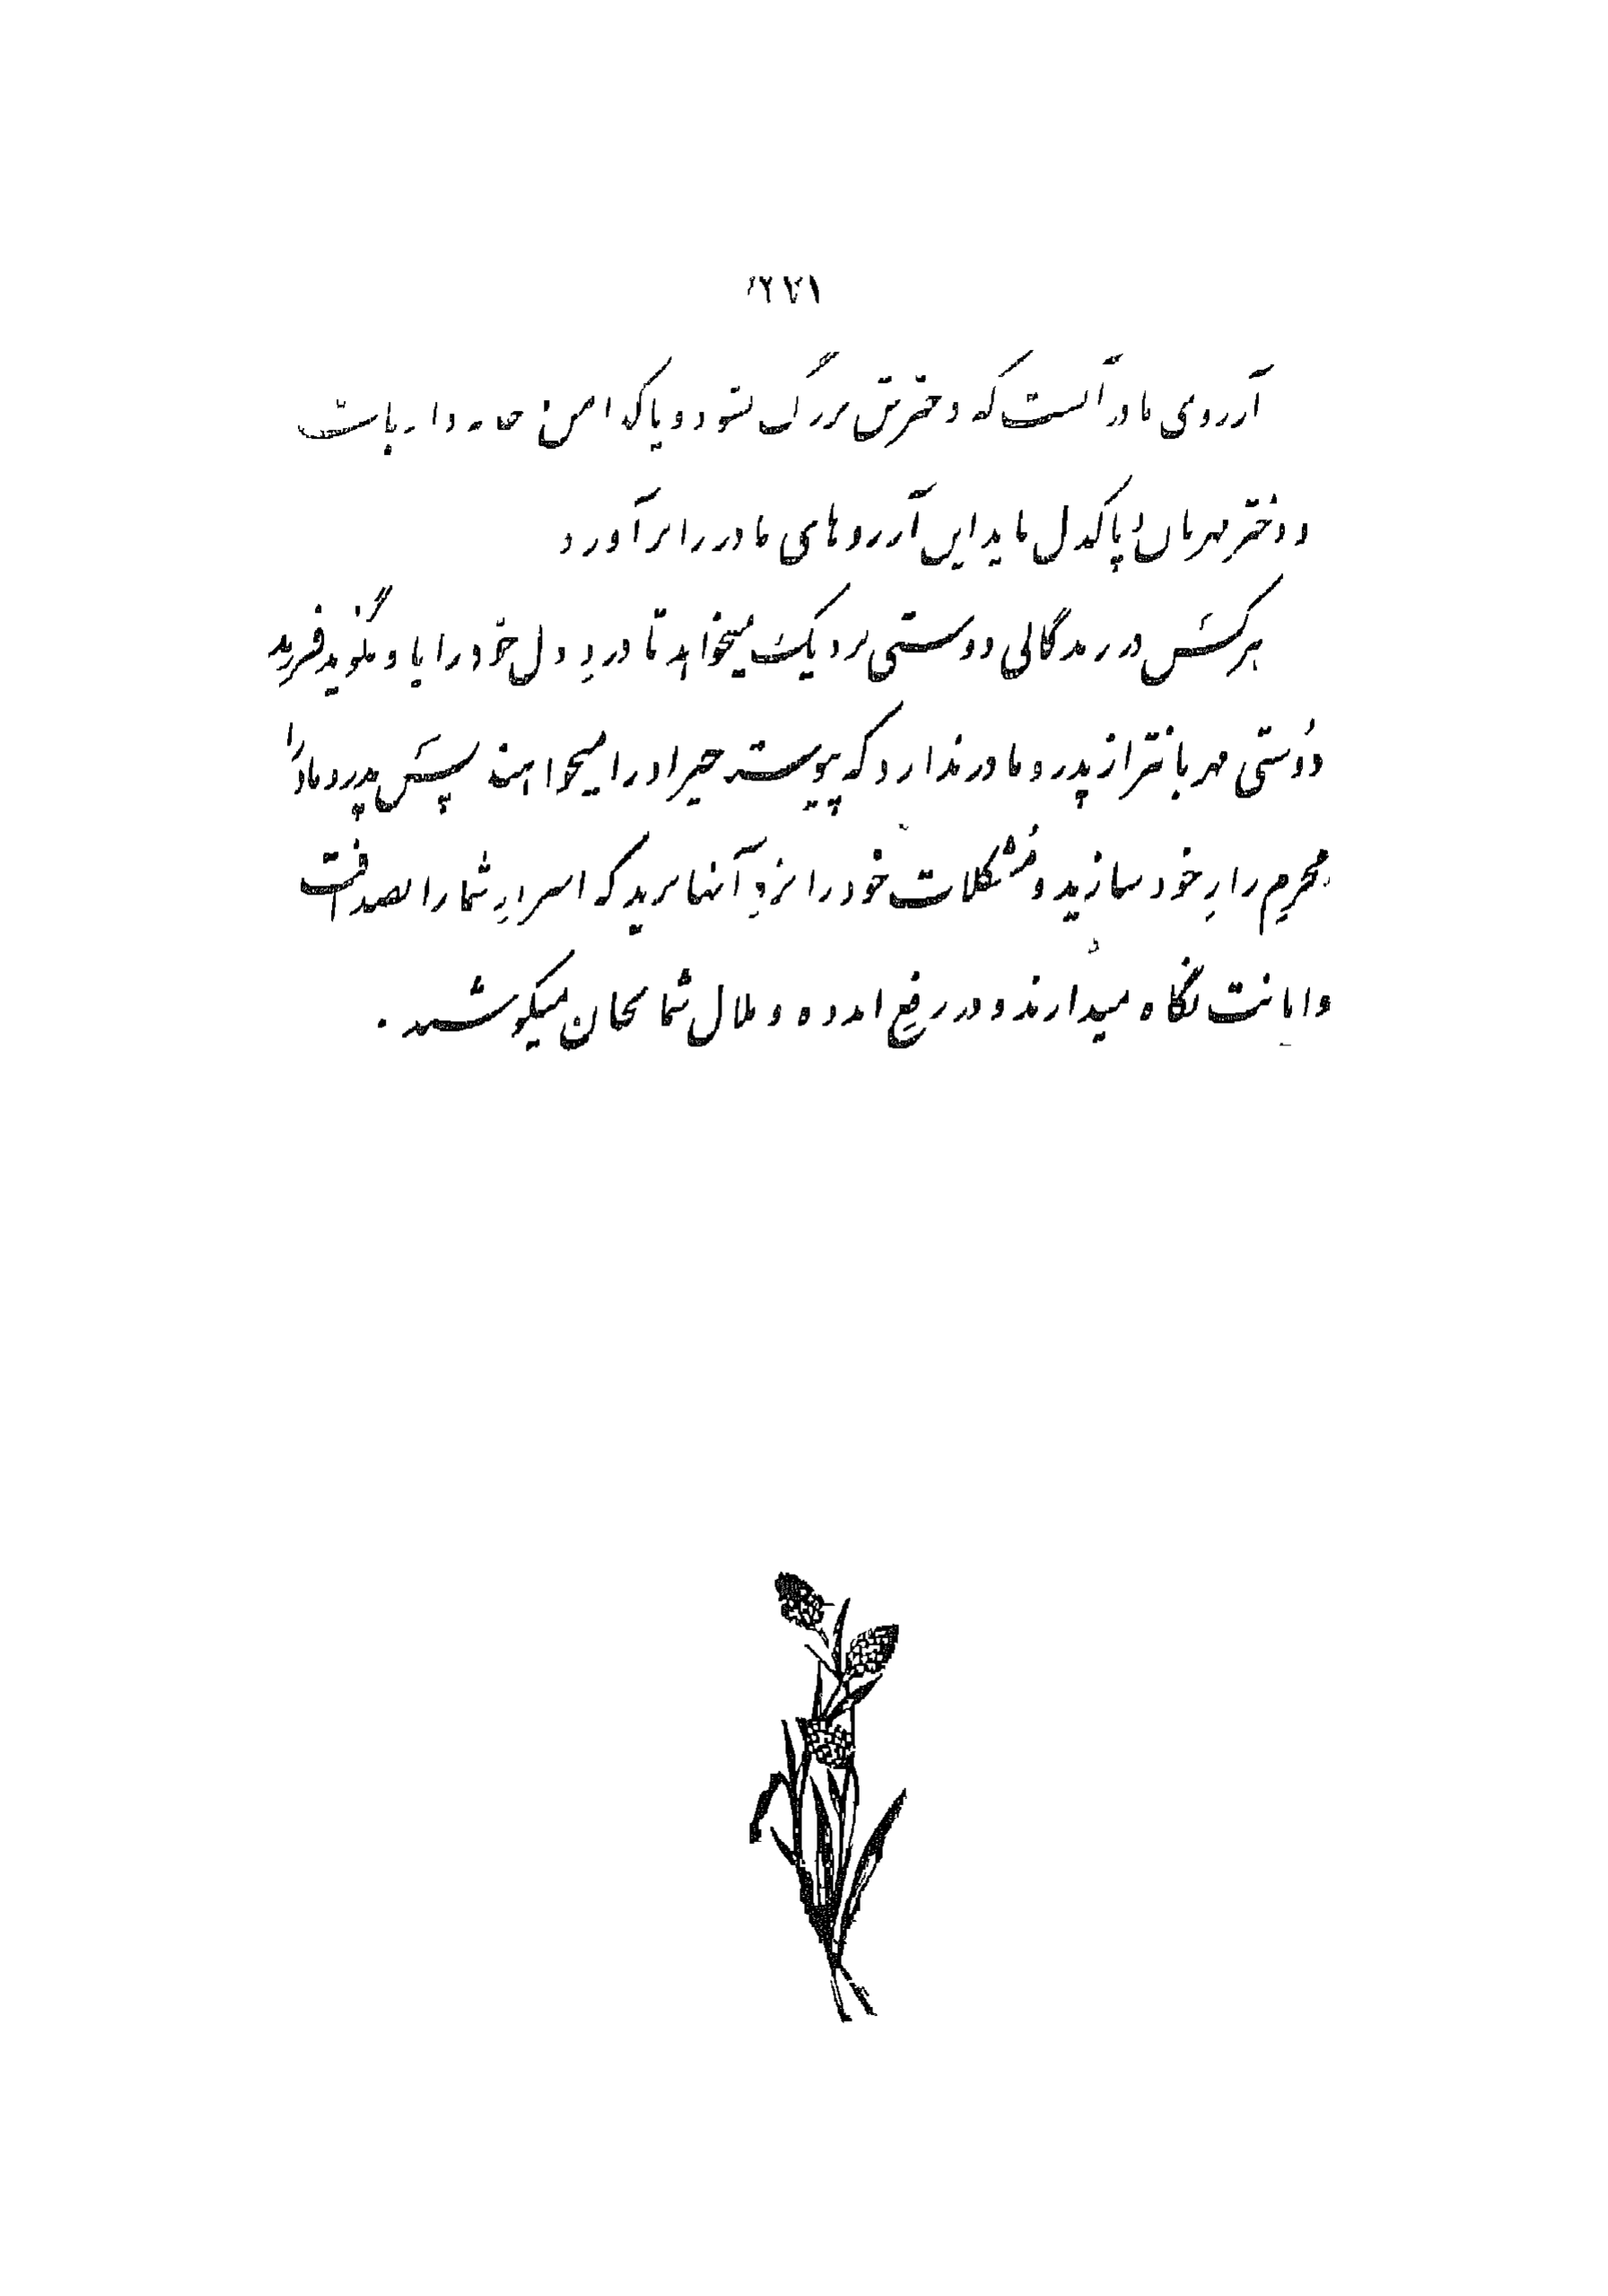 ۲۷۱
آرزوی مادر آنست که دخترش بزرگ بشود و پاکدامن خانه‌دار باشد
و دختر مهربان و پاکدل باید این آرزوهای مادر را برآورد
هرکَس در زندگانی دوستی نزدیک میخواهد تا دردِ دل خود را باو بگوید فرزند
دُوستی مهربانتر از پدر و مادر ندارد که پیوسته خیر او را میخواهند سپَس پدر و مادر را
محرمِ رازِ خود سازید و مُشکلات خود را نزدِ آنها برید که اسرارِ شما را بصداقت
و امانت نگاه میدارند و در رفعِ اندوه و ملال شما بجان میکوشند .